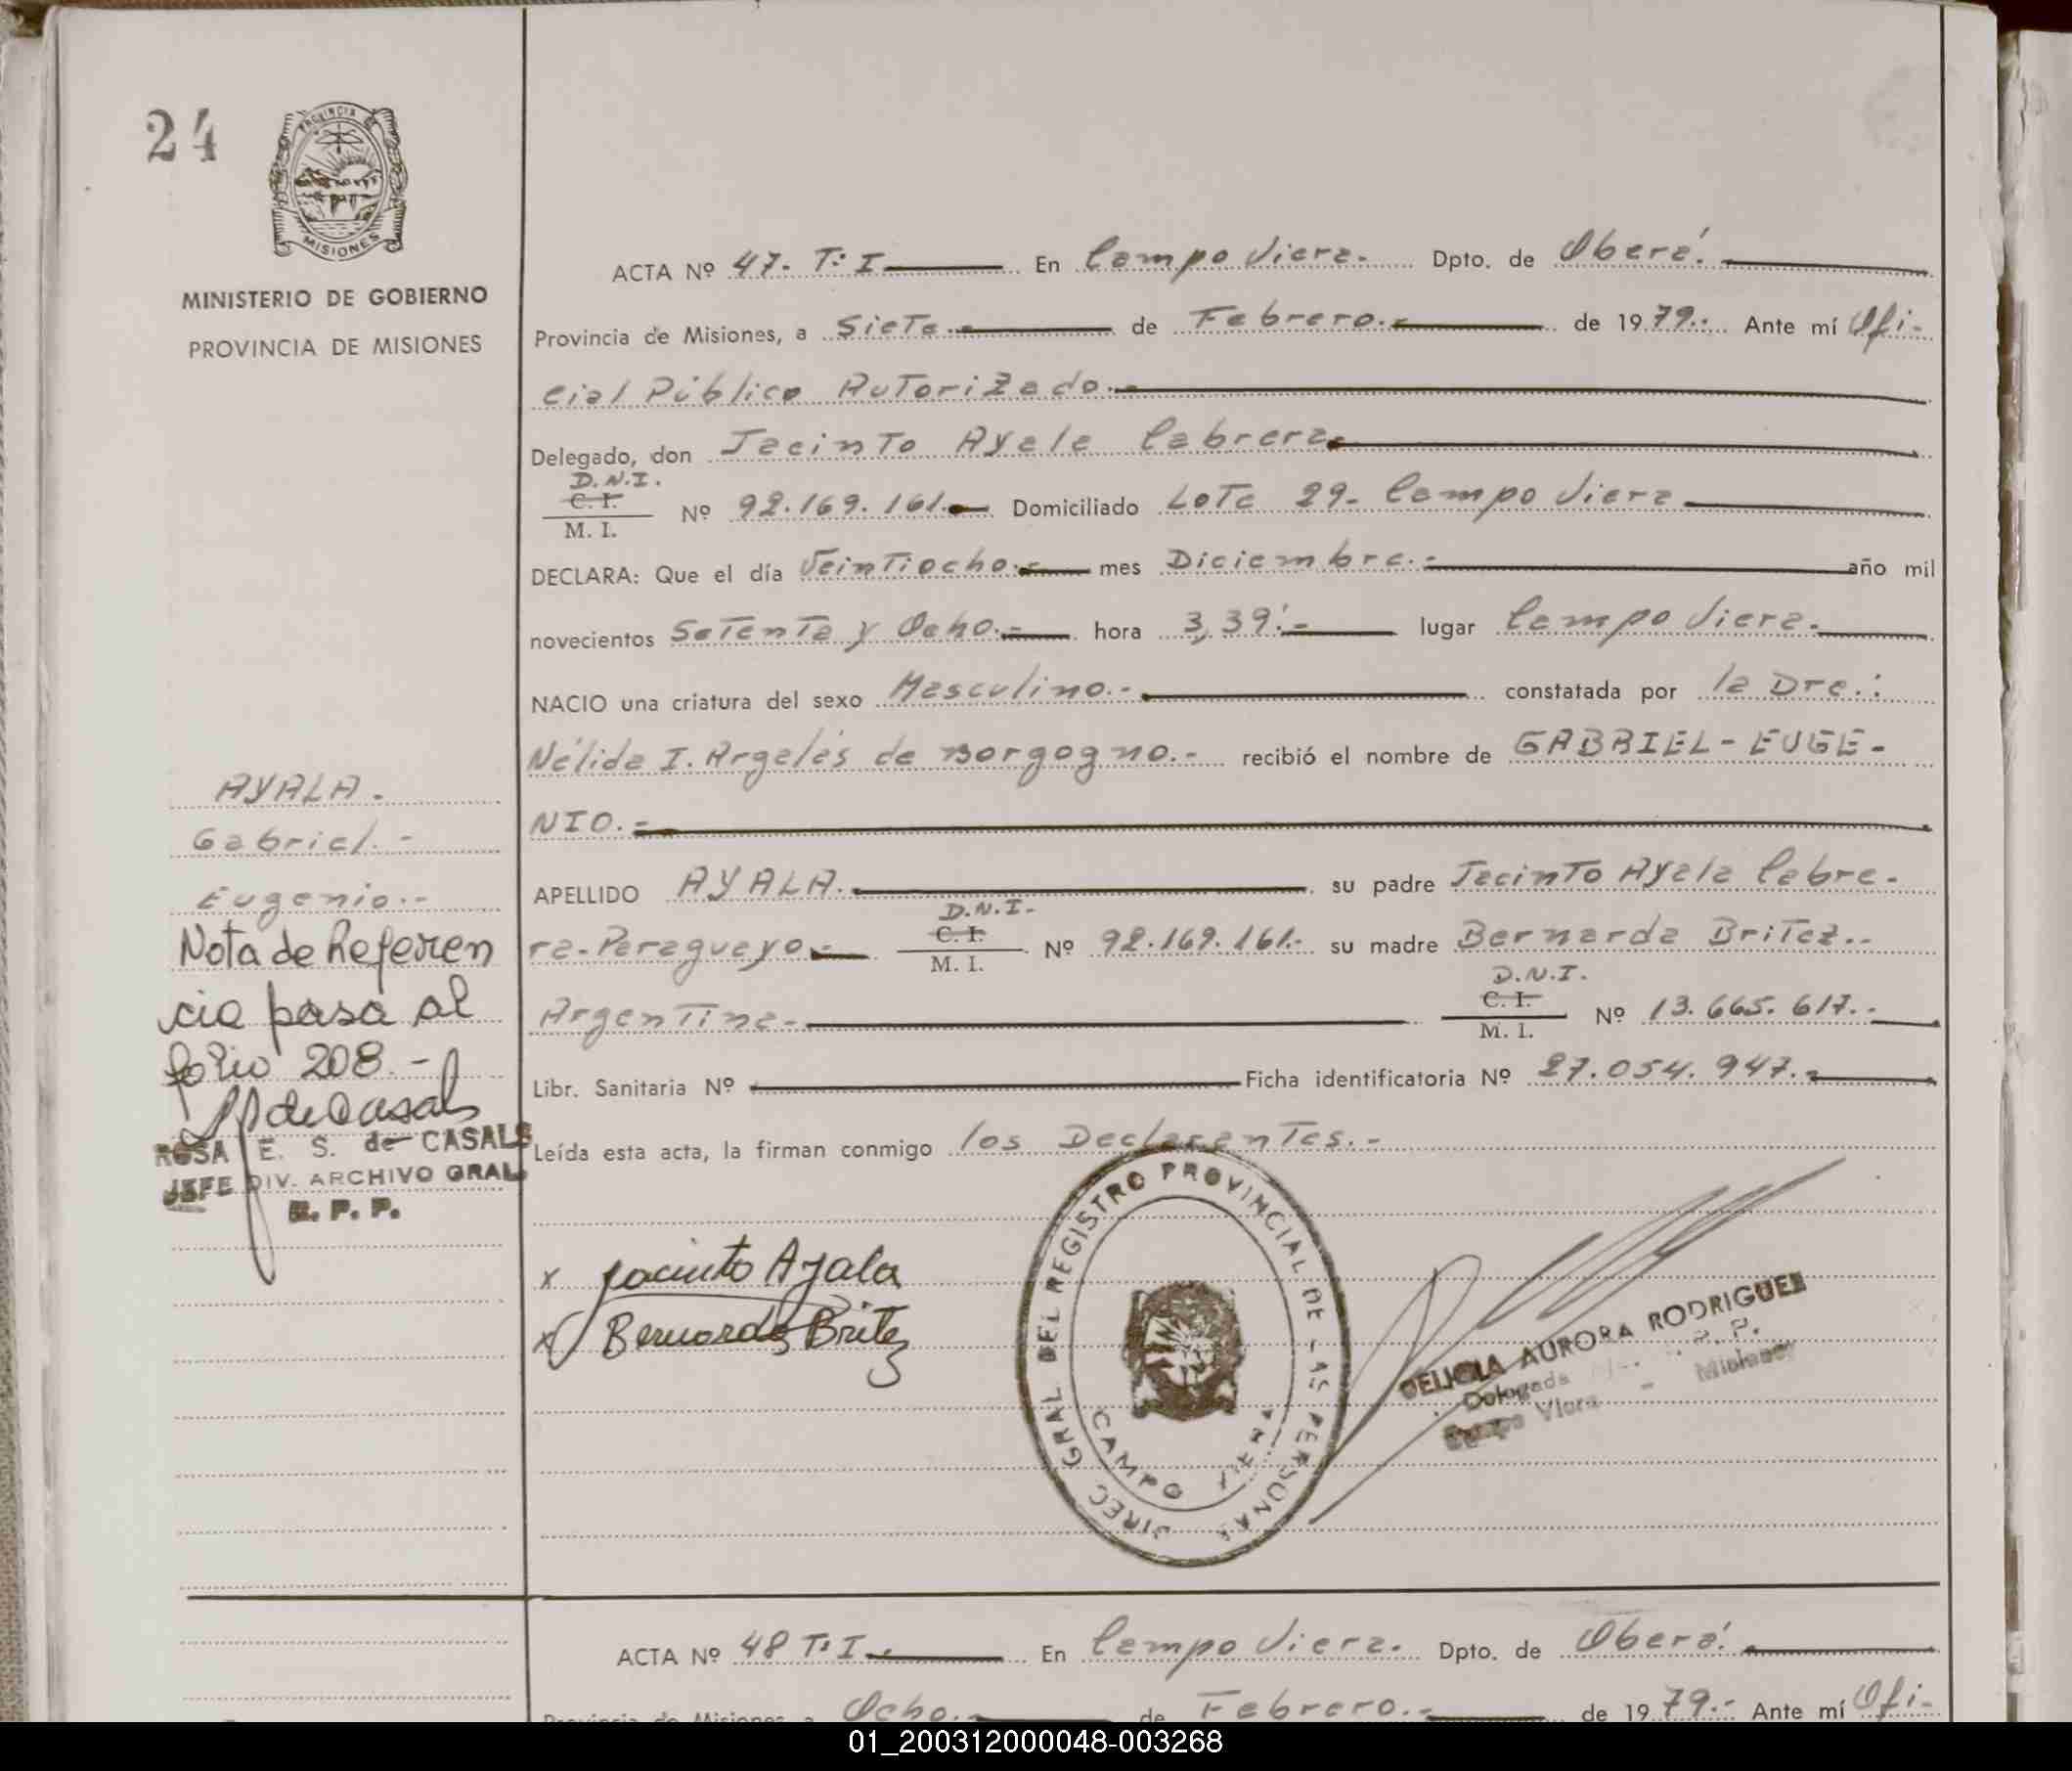 24
PROVINCIA DE
MISIONES
MINISTERIO DE GOBIERNO
PROVINCIA DE MISIONES
ACTA Nº 47. T: I En Campo Viera. Dpto. de Oberá.
Provincia de Misiones, a Siete.- de Febrero.- de 1979.- Ante mí Ofi-
cial Público Autorizado.-
Delegado, don Jacinto Ayala Cabrera.
D.N.I.
C. I.
M. I.
Nº 92.169.161.- Domiciliado Lote 29- Campo Viera
DECLARA: Que el día Veintiocho.- mes Diciembre.- año mil
novecientos Setenta y Ocho.- hora 3,39'.- lugar Campo Viera.
NACIO una criatura del sexo Masculino.- constatada por la Dra.:
Nélida I. Argelés de Borgogno.- recibió el nombre de GABRIEL-EUGE-
NIO.-
APELLIDO AYALA. su padre Jacinto Ayala Cabre-
ra-Paraguayo.- D.N.I. C. I. M. I. Nº 92.169.161.- su madre Bernarda Britez.-
Argentina- D.N.I. C. I. M. I. Nº 13.665.617.-
Libr. Sanitaria Nº Ficha identificatoria Nº 27.054.947.-
Leída esta acta, la firman conmigo los Declarantes.-
AYALA.
Gabriel.-
Eugenio.-
Nota de Referen
cia pasa al
folio 208.-
ROSA E. S. de CASALS
JEFE DIV. ARCHIVO GRAL.
R. P. P.
x Jacinto Ayala
x Bernarda Britez
DIREC GRAL DEL REGISTRO PROVINCIAL DE LAS PERSONAS
CAMPO VIERA
DELICIA AURORA RODRIGUEZ
Delegada R. P. P.
Campo Viera - Misiones
ACTA Nº 48 T: I En Campo Viera. Dpto. de Oberá.
Provincia de Misiones, a Ocho.- de Febrero.- de 1979.- Ante mí Ofi-
01_200312000048-003268